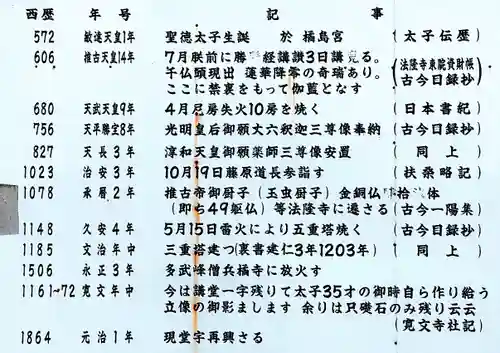 西歴 年号 記事
572 敏達天皇1年 聖徳太子生誕 於 橘島宮 (太子伝歴)
606 推古天皇14年 7月朕前に勝 経講讃3日講竟る。
千仏頭現出 蓮華降零の奇瑞あり。 (法隆寺東院資財帳
古今目録抄)
ここに禁裏をもって伽藍となす
680 天武天皇9年 4月尼房失火10房を焼く (日本書紀)
756 天平勝宝8年 光明皇后御願丈六釈迦三尊像奉納 (古今目録抄)
827 天長3年 淳和天皇御願薬師三尊像安置 (同上)
1023 治安3年 10月19日藤原道長参詣す (扶桑略記)
1078 承暦2年 推古帝御厨子(玉虫厨子)金銅仏 拾 体
(即ち49躯仏)等法隆寺に遷さる (古今一陽集)
1148 久安4年 5月15日雷火により五重塔焼く (古今目録抄)
1185 文治年中 三重塔建つ(裏書建仁3年1203年) (同上)
1506 永正3年 多武峰僧兵橘寺に放火す
1161~72 寛文年中 今は講堂一字残りて太子35才の御時自ら作り給う
立像の御影まします 余りは只礎石のみ残り云云
(寛文寺社記)
1864 元治1年 現堂字再興さる